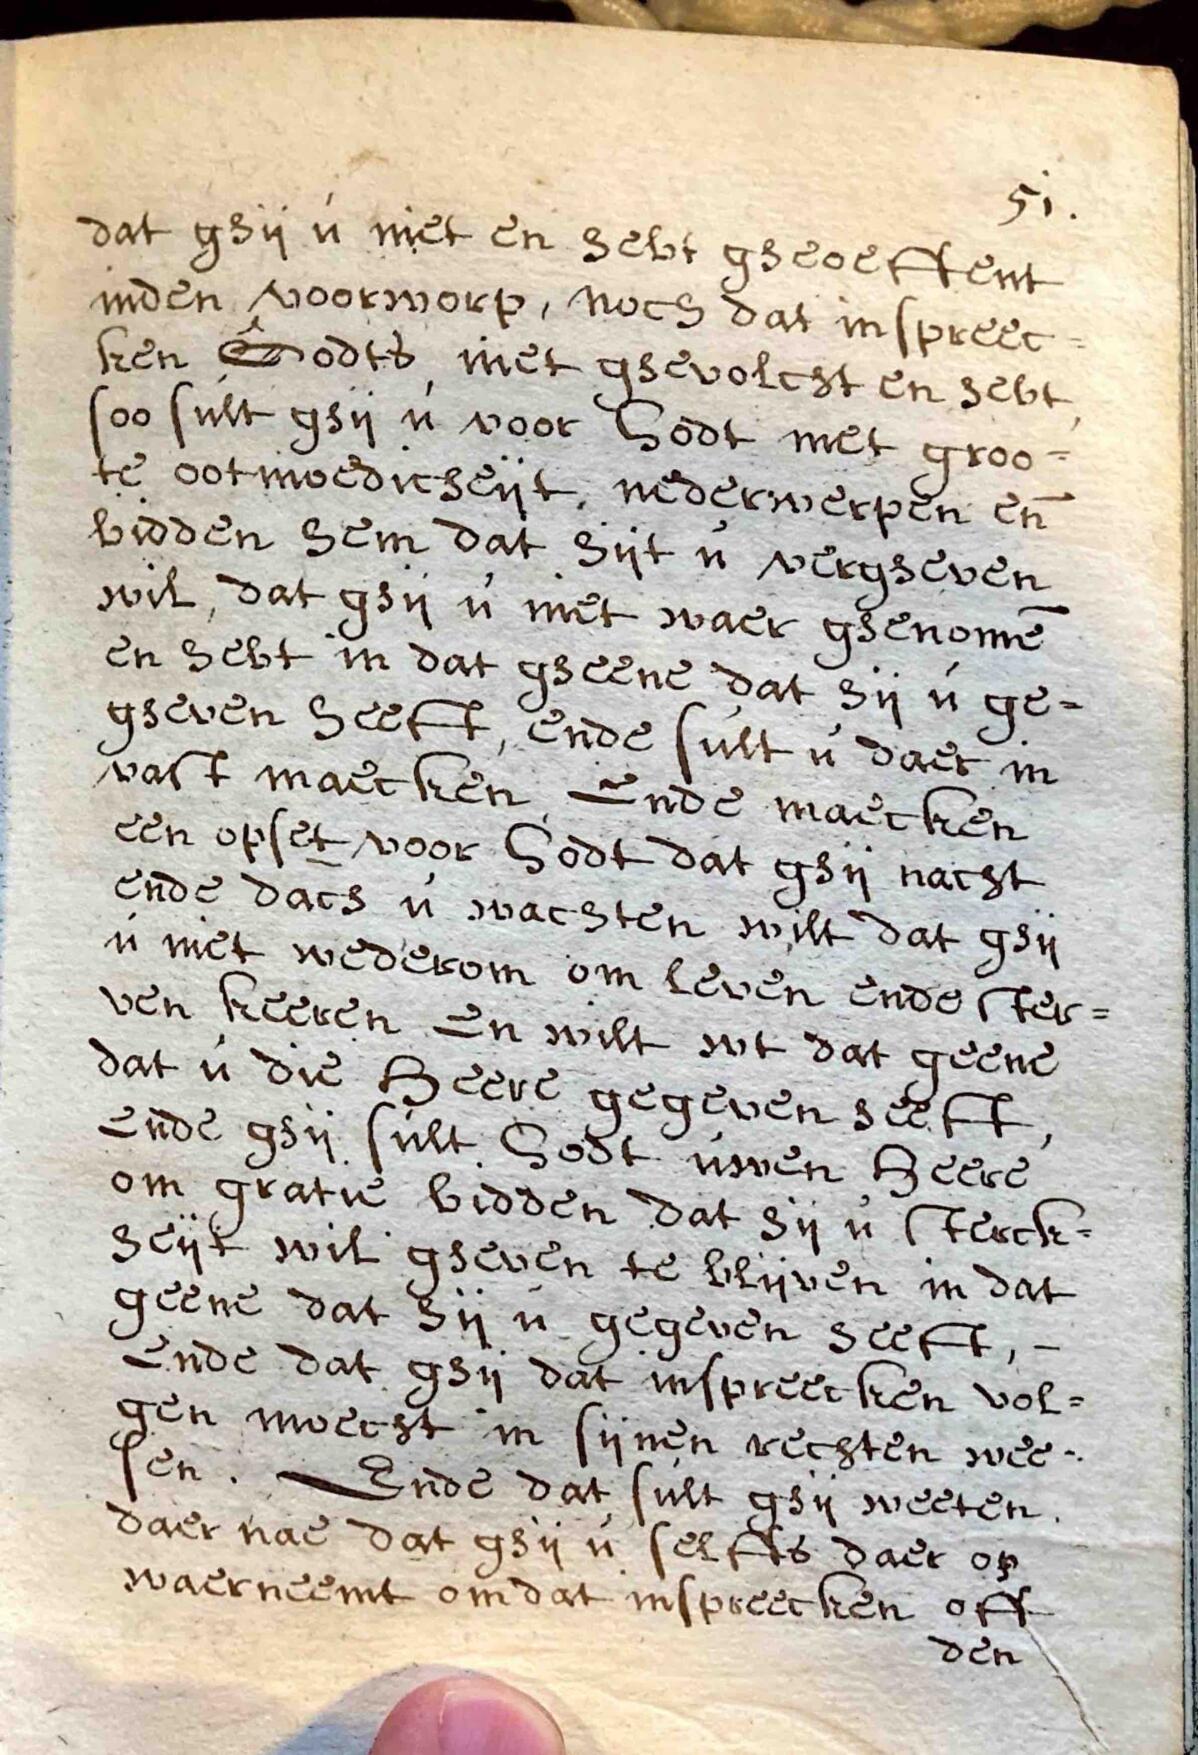 51.
dat ghij ú niet en hebt gheoeffent
inden voorworp, noch dat inspreec=
ken Godts, niet ghevolcht en hebt,
soo súlt ghij ú voor Godt met groo=
te ootmoedicheijt, nederwerpen en̄
bidden hem dat hijt ú vergheven
wil, dat ghij ú niet waer ghenomē
en hebt in dat gheene dat hij ú ge=
gheven heeft, ende súlt ú daer in
vast maecken, Ende maecken
een opset voor Godt dat ghij nacht
ende dach ú wachten wilt dat ghij
ú niet wederom om leven ende ster=
ven keeren En wilt wt dat geene
dat ú die Heere gegeven heeft,
Ende ghij súlt Godt úwen Heere
om gratie bidden dat hij ú sterck=
heijt wil gheven te blijven in dat
geene dat hij ú gegeven heeft, –
Ende dat ghij dat inspreecken vol=
gen moecht in sijnen rechten wee=
sen. Ende dat súlt ghij weeten.
daer nae dat ghij ú selffs daer op
waerneemt om dat inspreecken off
den